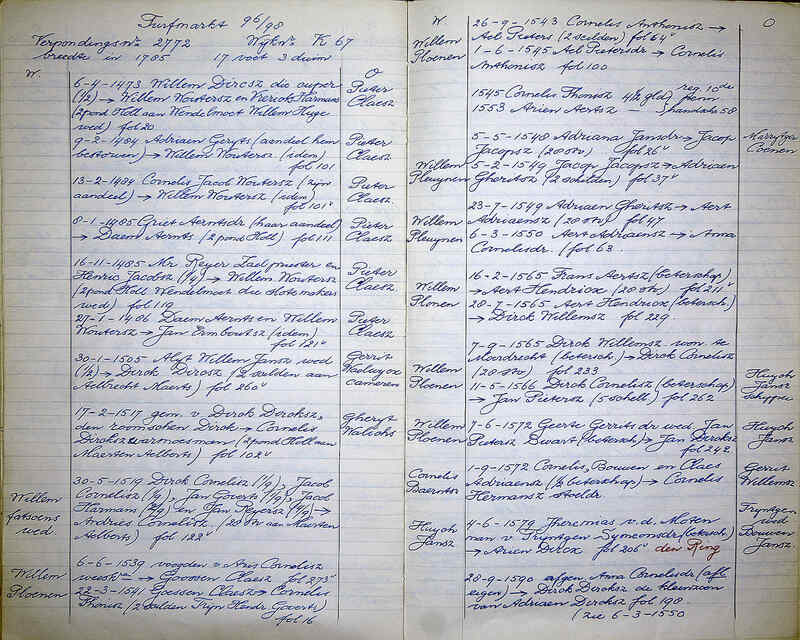 Turfmarkt 96/98
Verpondingsnr 2772 Wijknr K 67
breedte in 1785 17 voet 3 duim
W. O
6-4-1473 Willem Dircsz die cuper
(½) → Willem Woutersz en Kerck Harmans
(2 pond Holl aan Wendelmoet Willem Huge
wed) fol 20
Pieter
Claesz
9-2-1484 Adriaen Geryts (aendeel hem
bestorven) → Willem Woutersz (idem)
fol 101
Pieter
Claesz
13-2-1484 Cornelis Jacob Woutersz (zijn
aandeel) → Willem Woutersz (idem)
fol 101v
Pieter
Claesz
8-1-1485 Griet Aerntsdr (haar aandeel)
→ Daem Aernts (2 pond Holl) fol 111
Pieter
Claesz
16-11-1485 Mr Reyer Zael priester en
Henric Jacobsz (¼) → Willem Woutersz
(2 pond Holl Wendelmoet die Slotemakers
wed) fol 119
Pieter
Claesz
27-1-1486 Daem Aernts en Willem
Woutersz → Jan Ermboutsz (idem)
fol 121v
Pieter
Claesz
30-1-1505 Alyt Willem Jansz wed
(½) → Dirck Dircsz (2 scilden aan
Aelbrecht Maerts) fol 260v
Gerrit
cameren
17-2-1517 gem. v Dirck Dircksz,
den roomschen Dirck → Cornelis
Dircksz warmoesman (2 pond Holl aan
Maerten Aelberts) fol 102v
Gheryt
30-5-1519 Dirck Cornelisz (1/9), Jacob
Cornelisz (1/9), Jan Goverts (1/9), Jacob
Harmans (2/9) en Jan Reyersz (4/9) →
Andries Cornelisz. (20 stv aan Maerten
Aelberts) fol 122v
Willem
wed
6-6-1539 voogden v Aris Cornelisz
→ Goossen Claesz fol 273v
22-3-1541 Goessen Claesz → Cornelis
Thonisz (2 scilden Tryn Hendr. Goverts)
fol 16
Willem
Ploenen
W. O
26-9-1543 Cornelis Anthonisz →
Ael Pieters (2 scilden) fol 64v
1-6-1545 Ael Pietersdr → Cornelis
Anthonisz fol 100
Willem
Ploenen
1545 Cornelis Thonisz 4½ gld reg. 10de penn
1553 Arien Aertsz — handels 58
5-5-1548 Adriana Jansdr → Jacop
Jacopsz (20 stv) fol 26v
Marrytgen
Coenen
5-2-1549 Jacop Jacopsz → Adriaen
Gheritsz (2 scilden) fol 37v
Willem
Pleuynen
23-7-1549 Adriaen Gheritsz → Aert
Adriaensz (20 stv) fol 47
6-3-1550 Aert Adriaensz → Anna
Cornelisdr. (fol 63
Willem
Pleuynen
16-2-1565 Frans Aertsz (beterschap)
→ Aert Hendricx (20 stv) fol 211v
28-7-1565 Aert Hendricx (betersch)
→ Dirck Willemsz fol 229.
Willem
Plonen
7-9-1565 Dirck Willemsz won. te
Mordrecht (betersch) → Dirck Cornelisz
(20 stv) fol 233
11-5-1566 Dirck Cornelisz (beterschap)
→ Jan Pietersz (5 schell) fol 262
Willem
Ploenen
Huych
Jansz
schipper
7-6-1572 Geerte Gerrits dr wed. Jan
Pietersz Swart (betersch) → Jan Dircksz
fol 242
Willem
Ploenen
Huych
Jansz
1-9-1572 Cornelis, Bouwen en Claes
Adriaensz (⅓ beterschap) → Cornelis
Hermansz stoeldr.
Cornelis
Baerntsz
Gerrit
Willemsz
4-6-1579 Jheremias v.d. Moten
man v Tryntgen Symeonsdr (betersch)
→ Arien Dircx fol 206v den Ring
Huych
Jansz
Tryntgen
wed
Bouwen
Jansz.
28-9-1590 afgen. Anna Cornelisdr (afl.
eigen) → Dirck Dircksz de kleinzoon
van Adriaen Dircksz fol 198.
(zie 6-3-1550